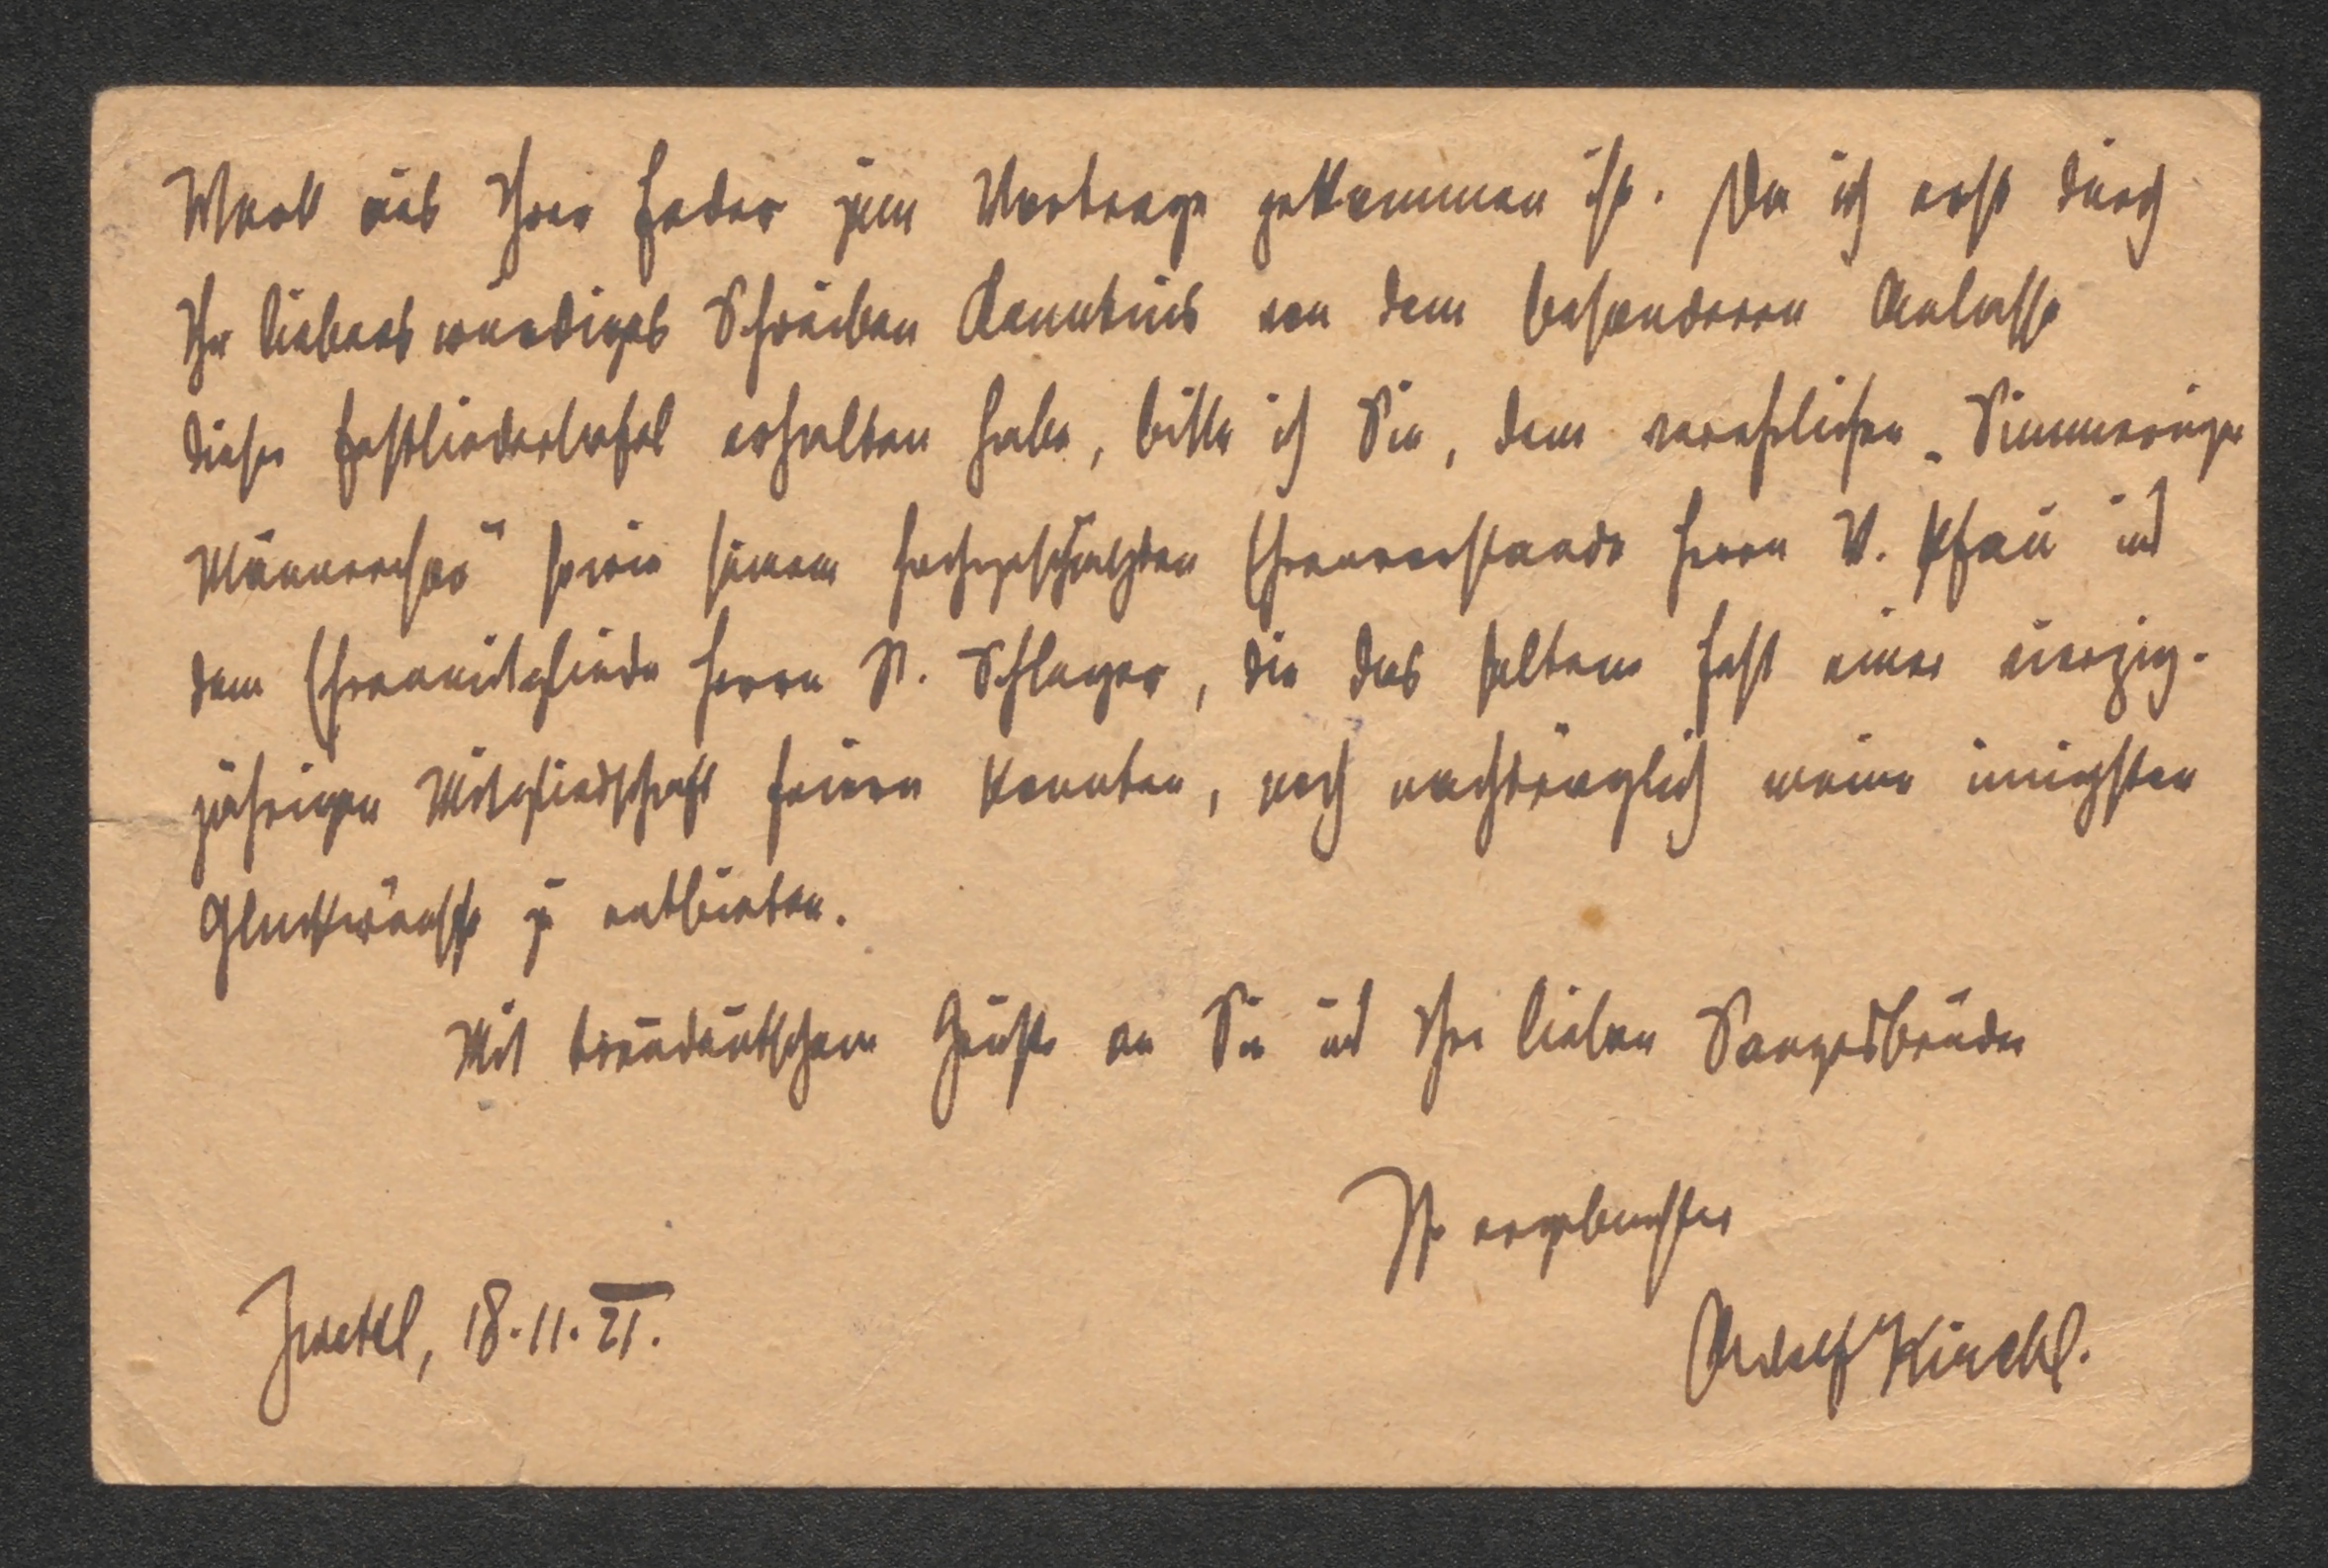 Werk aus Ihrer Feder zum Vortrage gekommen ist. Da ich erst durch
Ihr liebenswürdiges Schreiben Kenntnis von dem besonderen Anlasse
dieser Festliedertafel erhalten habe, bitte ich Sie, dem verehrlichen „Simmeringer
Männerchor" sowie seinem hochgeschätzten Ehrenvorstande Herrn V. Pfau und
dem Ehrenmitgliede Herrn St. Schlager, die das seltene Fest einer vierzig-
jährigen Mitgliedschaft feiern konnten, noch nachträglich meine innigsten
Glückwünsche zu entbieten.
Mit treudeutschem Gruße an Sie und Ihre lieben Sangesbrüder
Ihr ergebenster
Zwettl, 18.11.21.
Adolf Kirchl.